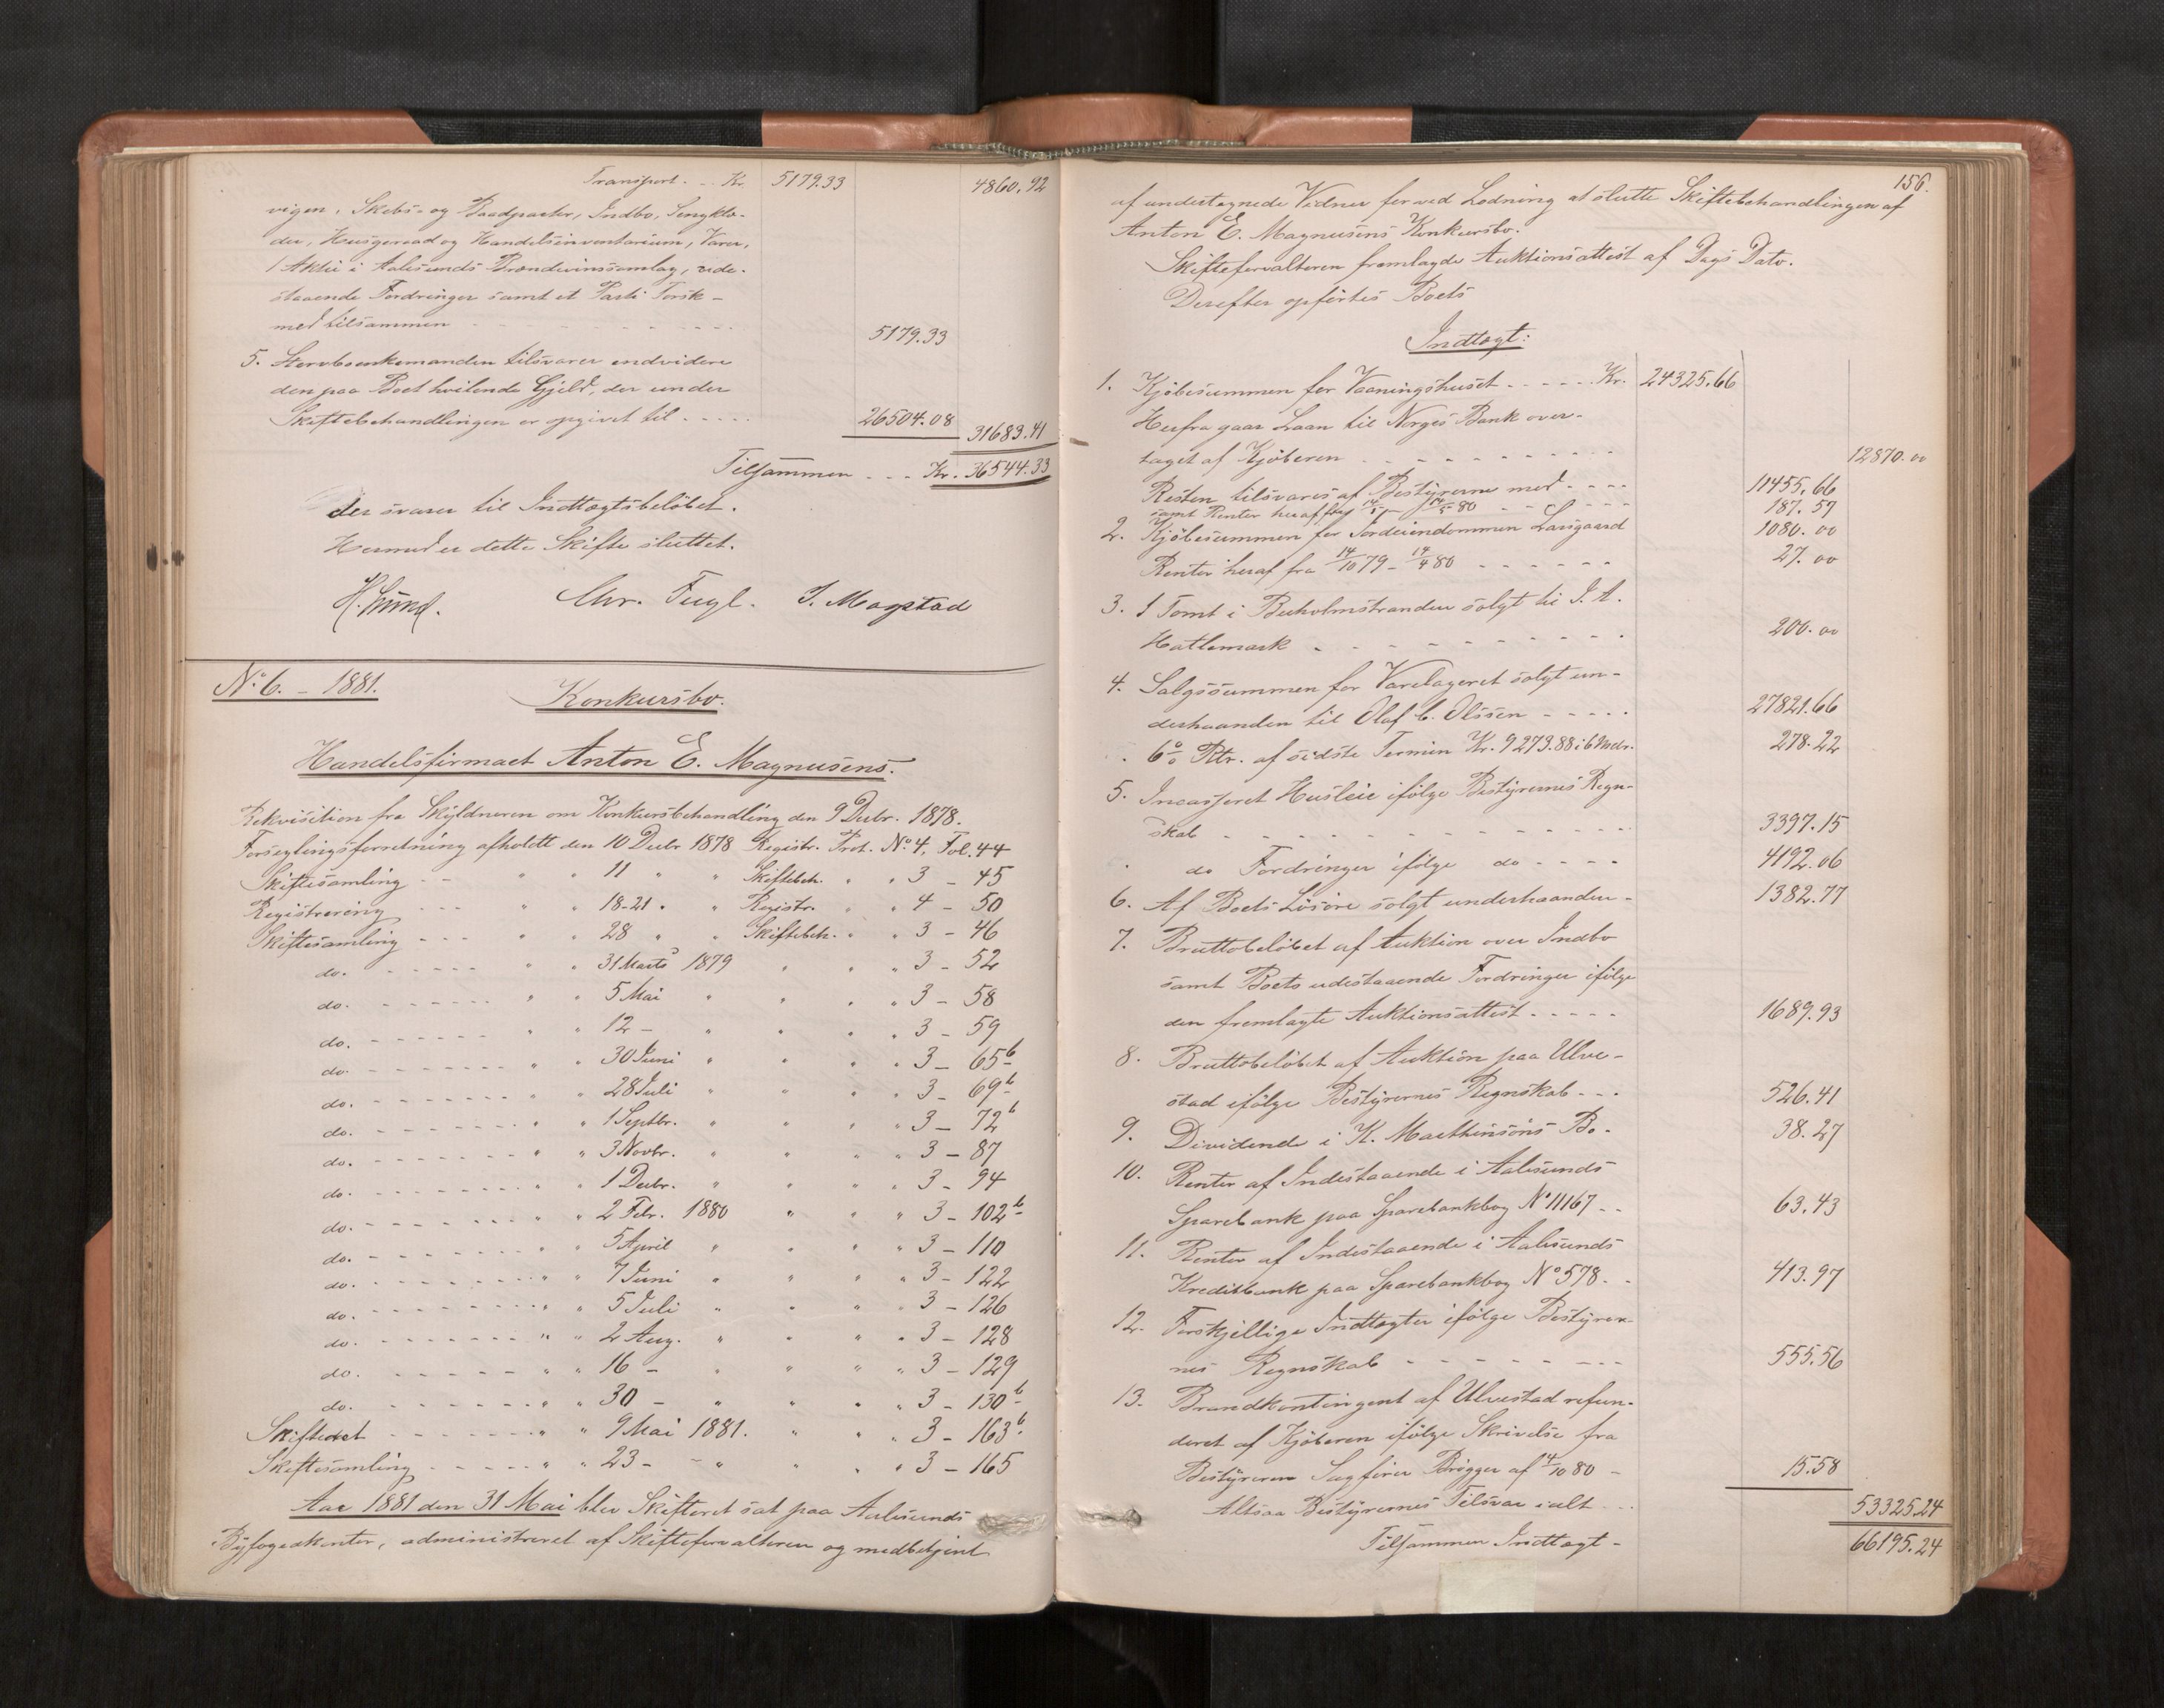 Transport. - - Kr. 5179.33 4860.92
vigen, Skibs- og Baadparter, Indbo, Sengklæ-
der, Husgeraad og Handelsinventarium, Varer,
1 Aktie i Aalesunds Brændevinssamlag, ude-
staaende Fordringer samt et Parti Torsk -
med tilsammen - - - 5179.33
5. Stervboenkemanden tilsvarer endvidere
den paa Boet hvilende Gjeld, der under
Skiftebehandlingen er opgivet til - - - - 26504.08 31683.41
Tilsammen - - - Kr. 36544.33
der svarer til Indtægtsbeløbet.
Hermed er dette Skifte sluttet.
Chr. Fugl. J. Magstad
No 6. - 1881. Konkursbo.
Handelsfirmaet Anton E. Magnusens.
Rekvisition fra Skyldneren om Konkursbehandling den 9 Decbr. 1878.
Forseglingsforretning afholdt den 10 Decbr 1878 Registr. Prot. No. 4, Fol. 44
Skiftesamling - - " " 11 " " Skiftebeh. " " 3 - 45
Registrering - - - " " 18-21 " " Registr. " " 4 - 50
Skiftesamling - - - " " 28 " " Skiftebeh. " " 3 - 46
do. - - - - - " " 31 Marts 1879 " " " 3 - 52
do. - - - - - " " 5 Mai " " " " 3 - 58
do. - - - - - " " 12 - " " " " 3 - 59
do. - - - - - " " 30 Juni " " " " 3 - 65b
do. - - - - - " " 28 Juli " " " " 3 - 69b
do. - - - - - " " 1 Septbr. " " " " 3 - 72b
do. - - - - - " " 3 Novbr. " " " " 3 - 87
do. - - - - - " " 1 Decbr. " " " " 3 - 94
do. - - - - - " " 2 Febr. 1880 " " " 3 - 102b
do. - - - - - " " 5 April " " " " 3 - 110
do. - - - - - " " 7 Juni " " " " 3 - 122
do. - - - - - " " 5 Juli " " " " 3 - 126
do. - - - - - " " 2 Aug. " " " " 3 - 128
do. - - - - - " " 16 - " " " " 3 - 129
do. - - - - - " " 30 - " " " " 3 - 130b
Skifteret - - - - - " " 9 Mai 1881. " " " 3 - 163b
Skiftesamling - - - - - " " 23 - " " " " 3 - 165
Aar 1881 den 31 Mai blev Skifteret sat paa Aalesunds
Byfogedkontor, administreret af Skifteforvalteren og medbetjent
156.
af undertegnede Vidner for ved Lodning at slutte Skiftebehandlingen af
Anton E. Magnusens Konkursbo.
Skifteforvalteren fremlagde Auktionsattest af Dags Dato.
Derefter opførtes Boets
Indtægt:
1. Kjøbesummen for Vaaningshuset - - - - - Kr. 24325.66
Herfra gaar Laan til Norges Bank over-
taget af Kjøberen - - - - - 12870.00
Resten tilsvares af Bestyrerne med - - - - 11455.66
samt Renter heraf 187.57
2. Kjøbesummen for Jordeiendommen Larsgaard 1080.00
Renter heraf fra 14/10 79 - 14/4 80 - - - - - 27.00
3. 1 Tomt i Buholmstranden solgt til J. A.
Hatlemark - - - - - 200.00
4. Salgssummen for Varelageret solgt un-
derhaanden til Olaf C. Olssen - - - - - 27821.66
6% Rtr. af sidste Termin Kr. 9273.88 i 6 Mdr. 278.22
5. Incasseret Husleie ifølge Bestyrernes Regn-
skab - - - - - 3397.15
do Fordringer ifølge do - - - - 4192.06
6. Af Boets Løsøre solgt underhaanden - 1382.77
7. Bruttobeløbet af Auktion over Indbo
samt Boets udestaaende Fordringer ifølge
den fremlagte Auktionsattest - - - - - 1689.93
8. Bruttobeløbet af Auktion paa Ulve-
stad ifølge Bestyrernes Regnskab - - - 526.41
9. Dividende i K. Maethinsøns Bo. 38.27
10. Renter af Indestaaende i Aalesunds
Sparebank paa Sparebankbog No 11167 - - 63.43
11. Renter af Indestaaende i Aalesunds
Kreditbank paa Sparebankbog No 578. - 413.97
12. Forskjellige Indtægter ifølge Bestyrer-
nes Regnskab - - - - - 555.56
13. Brandkontingent af Ulvestad refun-
deret af Kjøberen ifølge Skrivelse fra
Bestyreren Sagfører Brøgger af 4/10 80 - 15.58
Altsaa Bestyrernes Tilsvar ialt - - - 53325.24
Tilsammen Indtægt - 66195.24